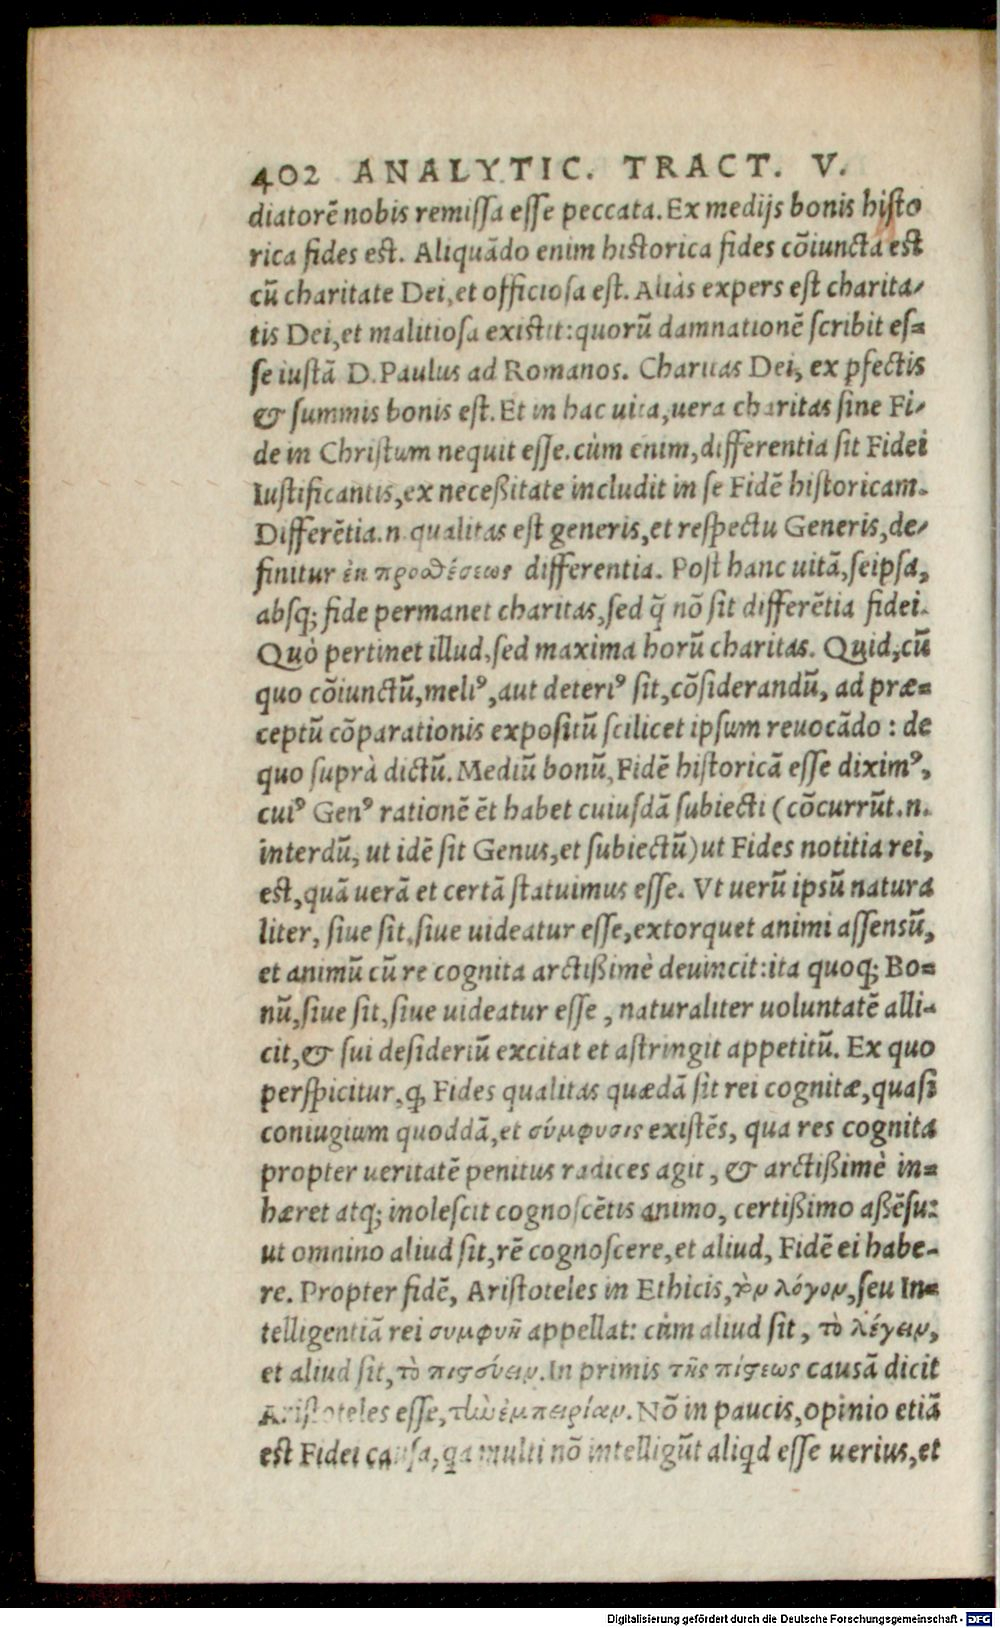 402 ANALYTIC. TRACT. V.
diatorẽ nobis remiſſa eſſe peccata. Ex medijs bonis hiſto
rica fides est. Aliquãdo enim historica fides cõiuncta est
cũ charitate Dei, et officioſa eſt. Aliàs expers eſt charita-
tis Dei, et malitioſa existit: quorũ damnationẽ ſcribit eſ=
ſe iuſtã D. Paulus ad Romanos. Charitas Dei, ex ꝑfectis
& ſummis bonis eſt. Et in hac uita, uera charitas ſine Fi-
de in Chriſtum nequit eſſe. cùm enim, differentia ſit Fidei
Iuſtificantis, ex neceßitate includit in ſe Fidẽ hiſtoricam.
Differẽtia .n. qualitas eſt generis, et reſpectu Generis, de-
finitur ἐκ προσθέσεως differentia. Poſt hanc uitã, ſeipſa,
abſq; fide permanet charitas, ſed q̃ nõ ſit differẽtia fidei.
Quò pertinet illud, ſed maxima horũ charitas. Quid, cũ
quo cõiunctũ, meliꝰ, aut deteriꝰ ſit, cõſiderandũ, ad præ=
ceptũ cõparationis expoſitũ ſcilicet ipſum reuocãdo: de
quo ſuprà dictũ. Mediũ bonũ, Fidẽ hiſtoricã eſſe diximꝰ,
cuiꝰ Genꝰ rationẽ ẽt habet cuiuſdã ſubiecti (cõcurrũt .n.
interdũ, ut idẽ ſit Genus, et ſubiectũ) ut Fides notitia rei,
est, quã uerã et certã ſtatuimus eſſe. Vt uerũ ipſũ natura
liter, ſiue ſit, ſiue uideatur eſſe, extorquet animi aſſenſũ,
et animũ cũ re cognita arctißimè deuincit: ita quoq; Bo=
nũ, ſiue ſit, ſiue uideatur eſſe, naturaliter uoluntatẽ alli-
cit, & ſui deſideriũ excitat et aſtringit appetitũ. Ex quo
perſpicitur, ꝙ Fides qualitas quædã ſit rei cognitæ, quaſi
coniugium quoddã, et σύμφυσις exiſtẽs, qua res cognita
propter ueritatẽ penitus radices agit, & arctißimè in=
hæret atq; inoleſcit cognoſcẽtis animo, certißimo aßẽſu:
ut omnino aliud ſit, rẽ cognoſcere, et aliud, Fidẽ ei habe-
re. Propter fidẽ, Ariſtoteles in Ethicis, τὸν λόγον, ſeu In=
telligentiã rei συμφυῆ appellat: cùm aliud ſit, τὸ λέγειν,
et aliud ſit, τὸ πιστεύειν. In primis τῆς πίστεως causã dicit
Ariſtoteles eſſe, τὴν ἐμπειρίαν. Nõ in paucis, opinio etiã
est Fidei cauſa, qa multi nõ intelligũt aliqd eſſe uerius, et
Digitalisierung gefördert durch die Deutsche Forschungsgemeinschaft - DFG